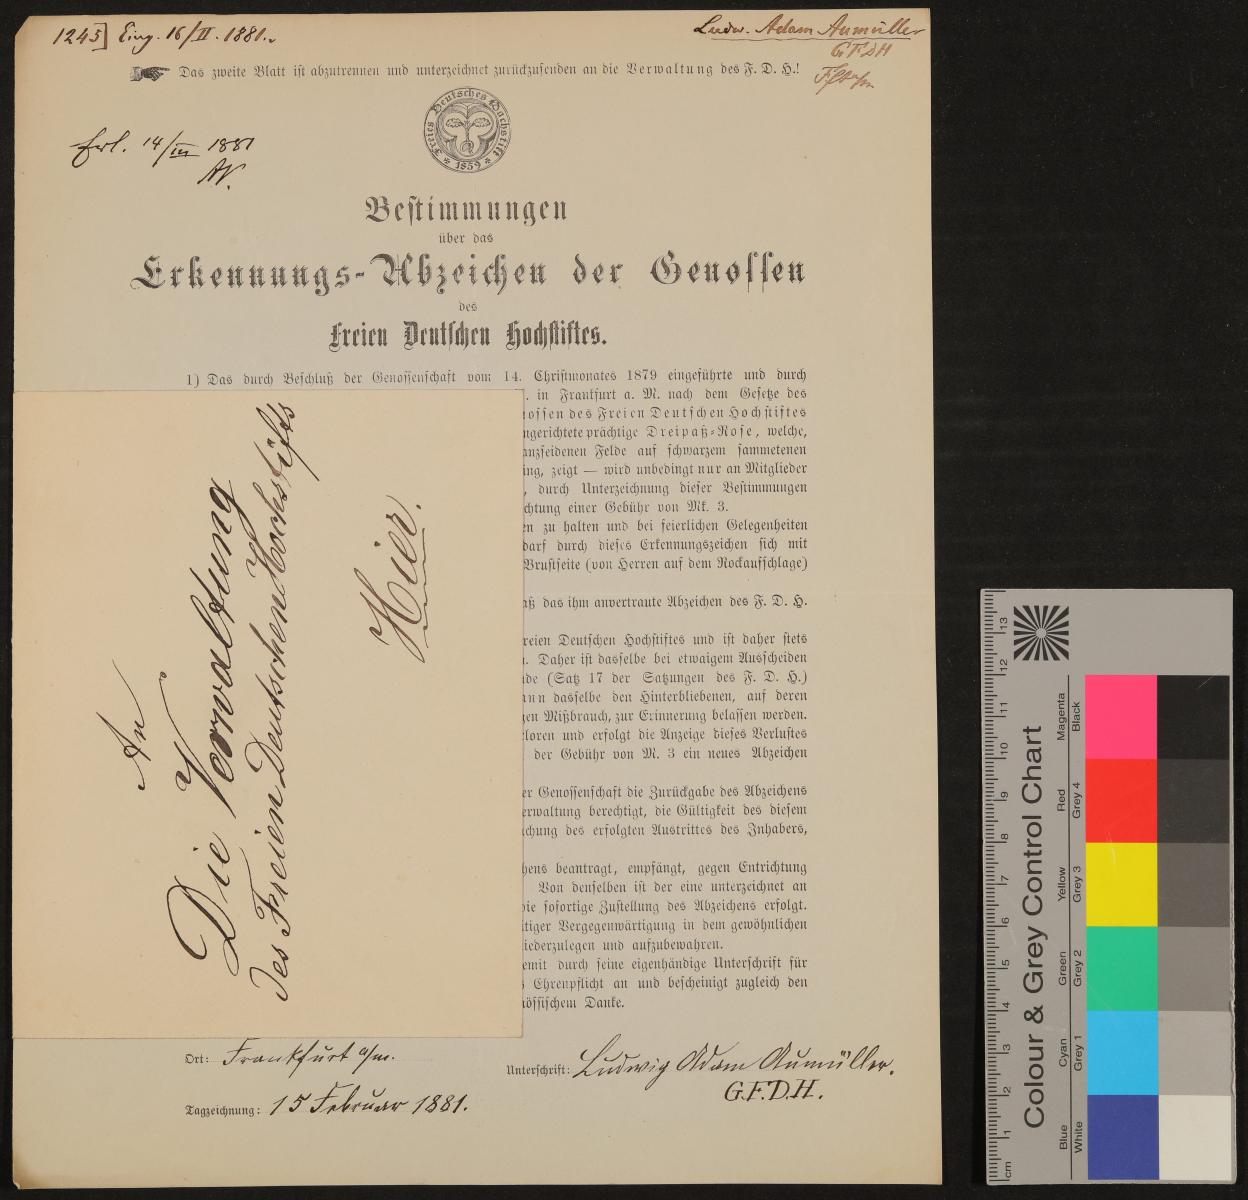 1245] Eing. 16/II. 1881.
Ludw. Adam Aumüller
GFDH
Das zweite Blatt ist abzutrennen und unterzeichnet zurückzusenden an die Verwaltung des F. D. H.!
Freies Deutsches Hochstift
* 1859 *
Erl. 14/III 1881
Bestimmungen
über das
Erkennungs-Abzeichen der Genossen
des
Freien Deutschen Hochstiftes.
1) Das durch Beschluß der Genossenschaft vom 14. Christmonates 1879 eingeführte und durch
. in Frankfurt a. M. nach dem Gesetze des
nossen des Freien Deutschen Hochstiftes
ngerichtete prächtige Dreipaß-Rose, welche,
anzseidenen Felde auf schwarzem sammetenen
ing, zeigt — wird unbedingt nur an Mitglieder
, durch Unterzeichnung dieser Bestimmungen
chtung einer Gebühr von Mk. 3.
en zu halten und bei feierlichen Gelegenheiten
darf durch dieses Erkennungszeichen sich mit
Brustseite (von Herren auf dem Rockaufschlage)
aß das ihm anvertraute Abzeichen des F. D. H.
reien Deutschen Hochstiftes und ist daher stets
. Daher ist dasselbe bei etwaigem Ausscheiden
de (Satz 17 der Satzungen des F. D. H.)
ann dasselbe den Hinterbliebenen, auf deren
gen Mißbrauch, zur Erinnerung belassen werden.
loren und erfolgt die Anzeige dieses Verlustes
der Gebühr von M. 3 ein neues Abzeichen
er Genossenschaft die Zurückgabe des Abzeichens
erwaltung berechtigt, die Gültigkeit des diesem
chung des erfolgten Austrittes des Inhabers,
hens beantragt, empfängt, gegen Entrichtung
Von denselben ist der eine unterzeichnet an
die sofortige Zustellung des Abzeichens erfolgt.
itiger Vergegenwärtigung in dem gewöhnlichen
iederzulegen und aufzubewahren.
emit durch seine eigenhändige Unterschrift für
s Ehrenpflicht an und bescheinigt zugleich den
nössischem Danke.
An
Die Verwaltung
des Freien Deutschen Hochstifts
Hier.
Ort: Frankfurt a/m.
Unterschrift: Ludwig Adam Aumüller.
G.F.D.H.
Tagzeichnung: 15 Februar 1881.
Colour & Grey Control Chart
Blue Cyan Green Yellow Red Magenta
White Grey 1 Grey 2 Grey 3 Grey 4 Black
cm 1 2 3 4 5 6 7 8 9 10 11 12 13